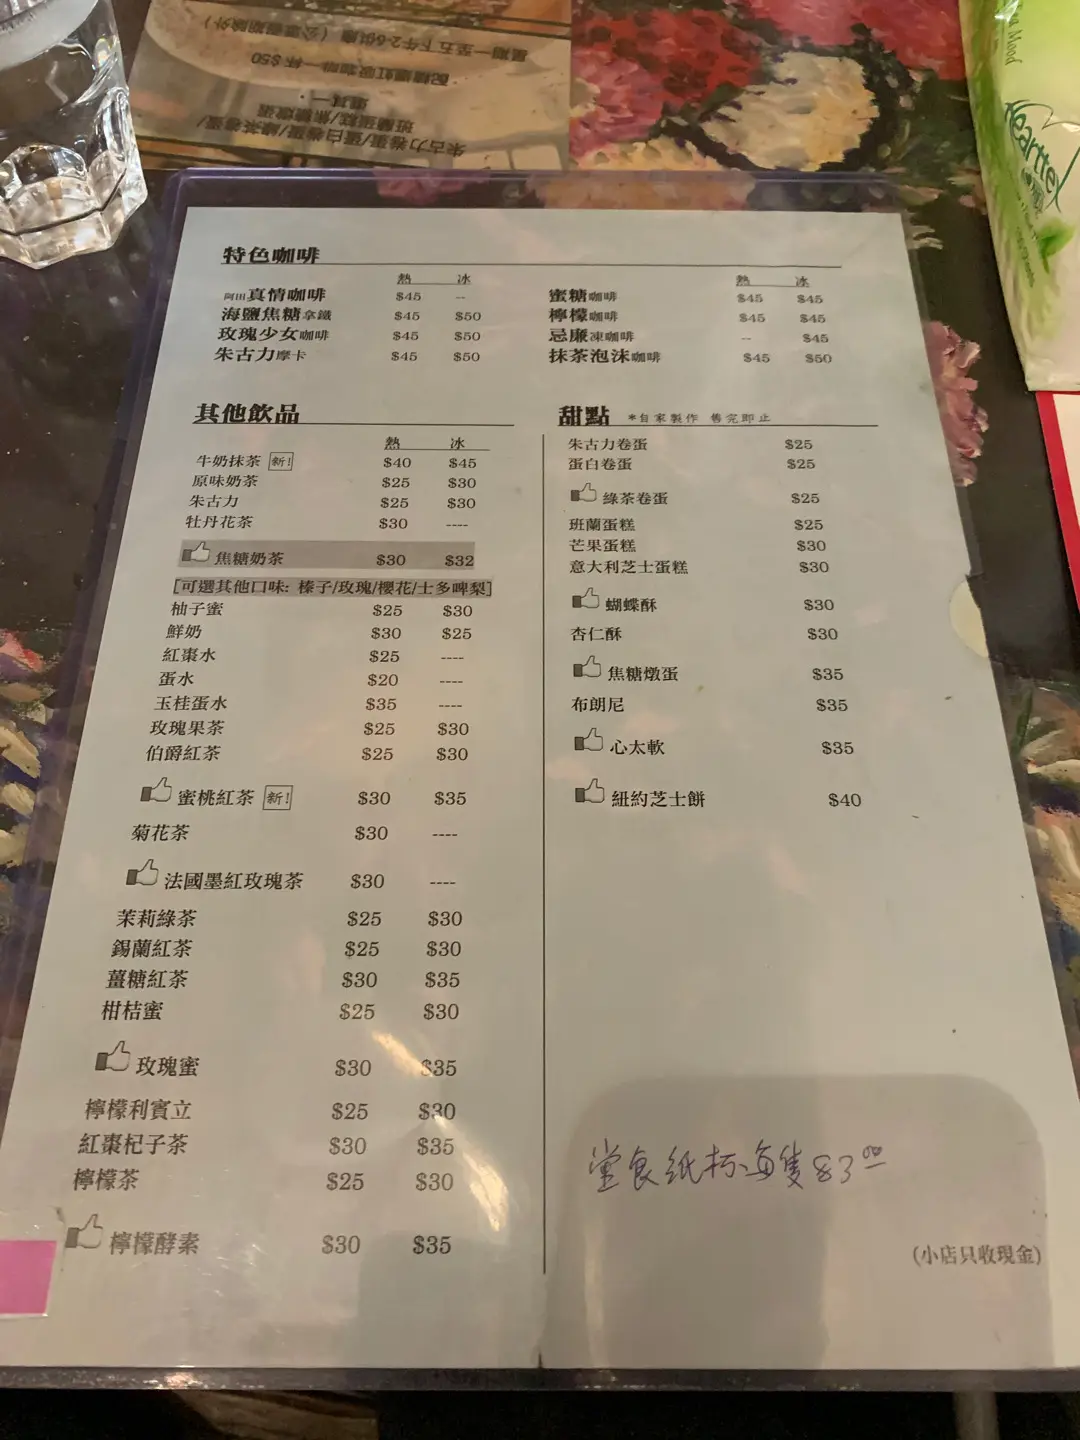 星期一至五下午2-6供應（公眾假期除外）
配精選虹吸咖啡一杯 $50
選其一：
班蘭蛋糕/焦糖燉蛋
朱古力卷蛋/蛋白卷蛋/綠茶卷蛋/
Mood
Hearttex
特色咖啡
熱 冰 熱 冰
阿田真情咖啡 $45 -- 蜜糖咖啡 $45 $45
海鹽焦糖拿鐵 $45 $50 檸檬咖啡 $45 $45
玫瑰少女咖啡 $45 $50 忌廉凍咖啡 -- $45
朱古力摩卡 $45 $50 抹茶泡沫咖啡 $45 $50
其他飲品
熱 冰
牛奶抹茶 新! $40 $45
原味奶茶 $25 $30
朱古力 $25 $30
牡丹花茶 $30 ----
焦糖奶茶 $30 $32
[可選其他口味: 榛子/玫瑰/櫻花/士多啤梨]
柚子蜜 $25 $30
鮮奶 $30 $25
紅棗水 $25 ----
蛋水 $20 ----
玉桂蛋水 $35 ----
玫瑰果茶 $25 $30
伯爵紅茶 $25 $30
蜜桃紅茶 新! $30 $35
菊花茶 $30 ----
法國墨紅玫瑰茶 $30 ----
茉莉綠茶 $25 $30
錫蘭紅茶 $25 $30
薑糖紅茶 $30 $35
柑桔蜜 $25 $30
玫瑰蜜 $30 $35
檸檬利賓立 $25 $30
紅棗杞子茶 $30 $35
檸檬茶 $25 $30
檸檬酵素 $30 $35
甜點 *自家製作 售完即止
朱古力卷蛋 $25
蛋白卷蛋 $25
綠茶卷蛋 $25
班蘭蛋糕 $25
芒果蛋糕 $30
意大利芝士蛋糕 $30
蝴蝶酥 $30
杏仁酥 $30
焦糖燉蛋 $35
布朗尼 $35
心太軟 $35
紐約芝士餅 $40
堂食紙杯每隻$3.00
(小店只收現金)